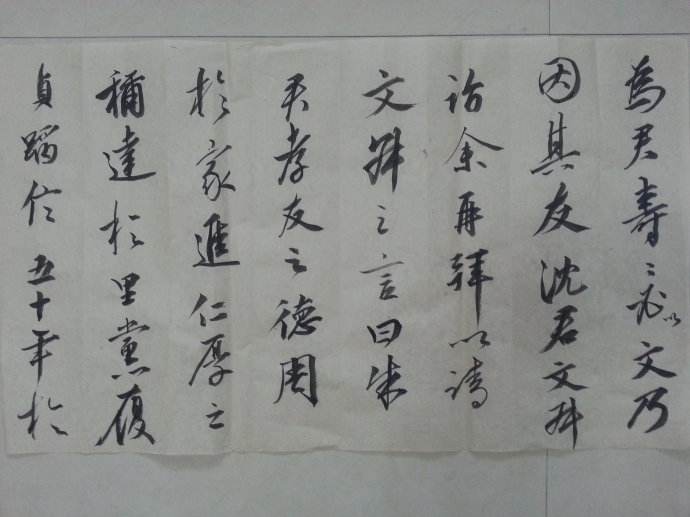 為君壽々必以文乃
因其友沈君文昇
詣余再拜以請
文昇之言曰朱
君孝友之德周
於家遜仁厚之
稱達於里黨履
貞蹈信五十年於